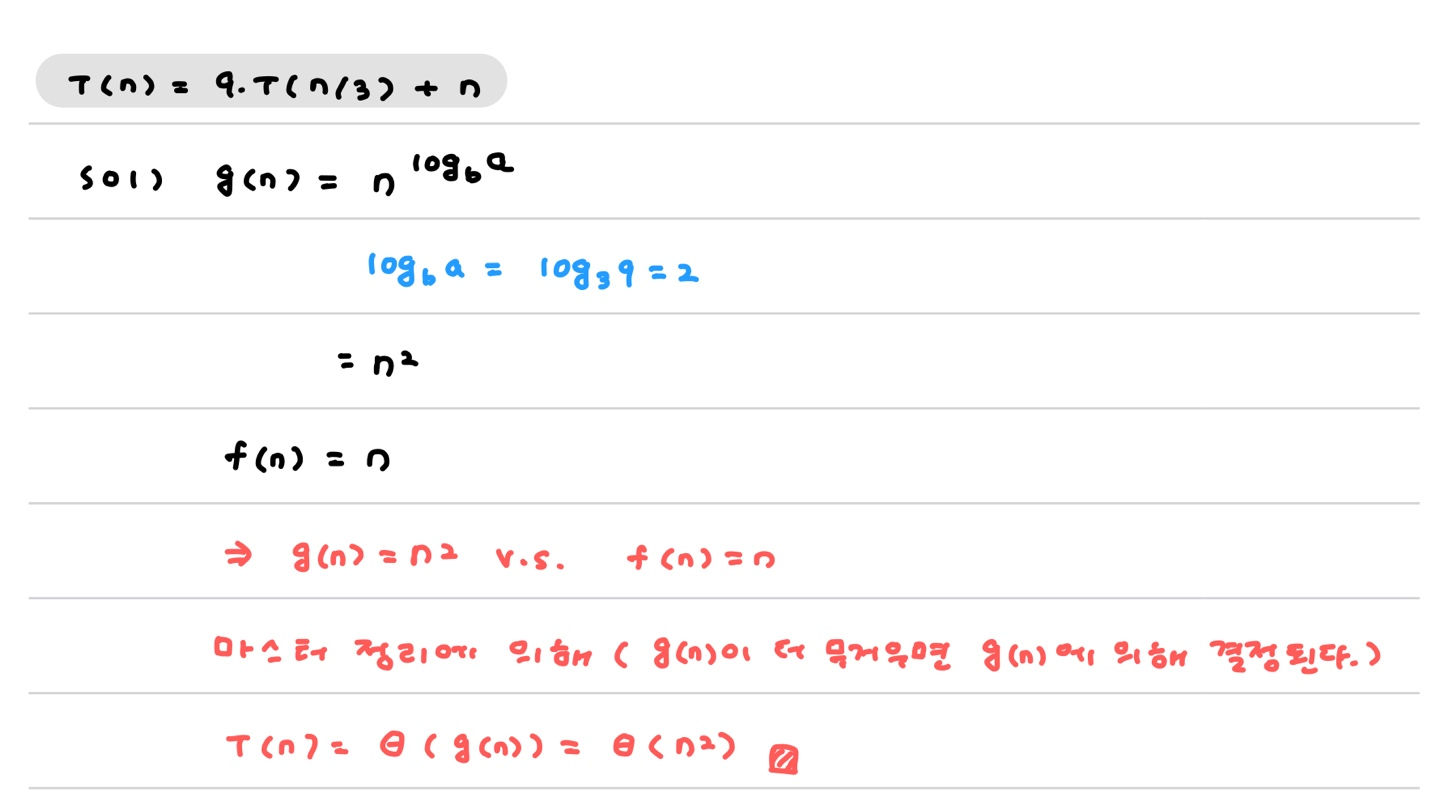 T(n) = 9·T(n/3) + n
sol) g(n) = n^{log_b a}
log_b a = log_3 9 = 2
= n²
f(n) = n
⇒ g(n) = n² v.s. f(n) = n
마스터 정리에 의해 ( g(n)이 더 무거우면 g(n)에 의해 결정된다.)
T(n) = θ ( g(n) ) = θ ( n² )